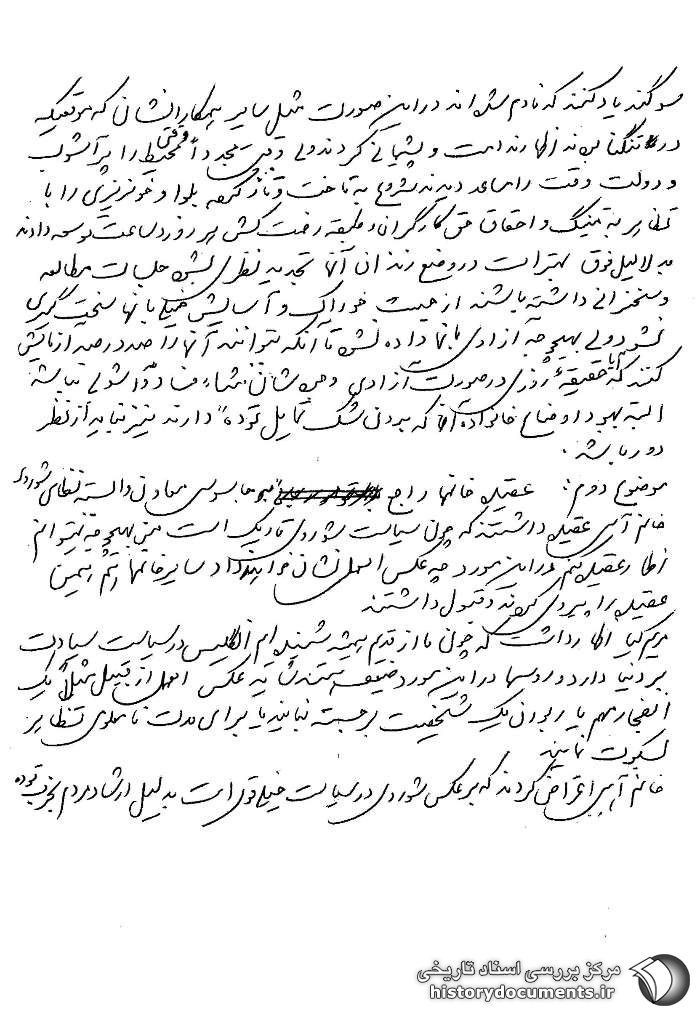 سوگند یاد کنند که نادم شده‌اند در این صورت مثل سایر همکارانشان که موقعیکه
در تنگنا بودند اظهار ندامت و پشیمانی کردند ولی وقتی مجدداً محیط را پر آشوب
و دولت وقت را مساعد دیدند شروع به تاخت و تاز کرده بلوا و خونریزی را با
تظاهر به میتینگ و احقاق حق کارگران و طبقه رحمت کش هر روز و ساعت توسعه دادند
به دلایل فوق بهتر است در وضع زندان آنها تجدید نظری بشود جلسات مطالعه
و سخنرانی داشته باشند از حیث خوراک و آسایش خیلی با آنها سخت گیری
نشود ولی بهیچوجه آزادی بآنها داده نشود تا آنکه بتوانند آنها را صد در صد آزمایش
کنند که آیا حقیقةً روزی در صورت آزادی وجودشان منشاء فساد و آشوبی نباشد
البته بهبود اوضاع خانواده آنها که بدون شک تمایل "توده" دارند نیز نباید از نظر
دور باشد.
موضوع دوم: عقیده خانمها راجع به جاسوسی معاون وابسته نظامی شوروی
خانم آهی عقیده داشتند که چون سیاست شوروی تاریک است من بهیچوجه نمیتوانم
اظهار عقیده کنم در این مورد چه عکس العملی نشان خواهند داد سایر خانمها هم همین
عقیده را پیروی کرده و قبول داشتند
مریم کیا اظهار داشت که چون ما از قدیم همیشه شنیده‌ایم انگلیس در سیاست سیادت
بر دنیا دارد و روسها در این مورد ضعیف هستند عکس العمل از قبیل مثلاً یک
انفجار مهم یا ربودن یک شخصیت برجسته نمایند یا برای مدت نامعلومی تظاهر
بسکوت نمایند
خانم آهی اعتراض کردند که برعکس شوروی در سیاست خیلی قوی است بدلیل ارشاد مردم بحزب توده
مرکز بررسی اسناد تاریخی
historydocuments.ir